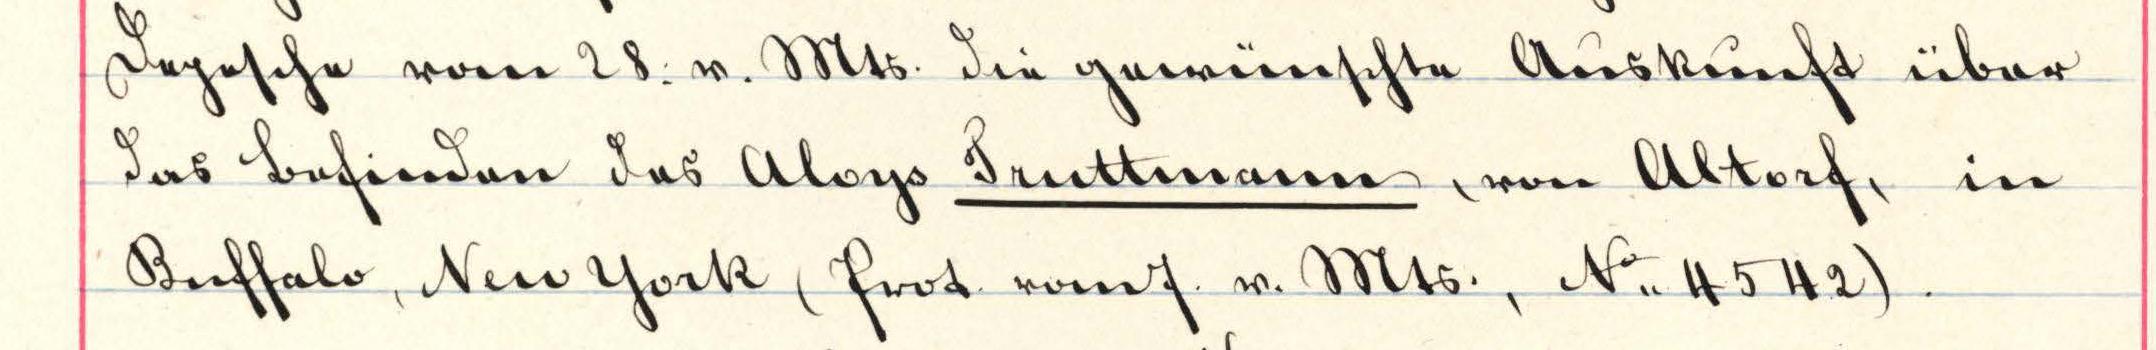 Depesche vom 28. v. Mts. die gewünschte Auskunft über
das Befinden des Aloys Truttmann, von Altorf, in
Buffalo, New York (Prot. vom 7. v. Mts., No. 4542).